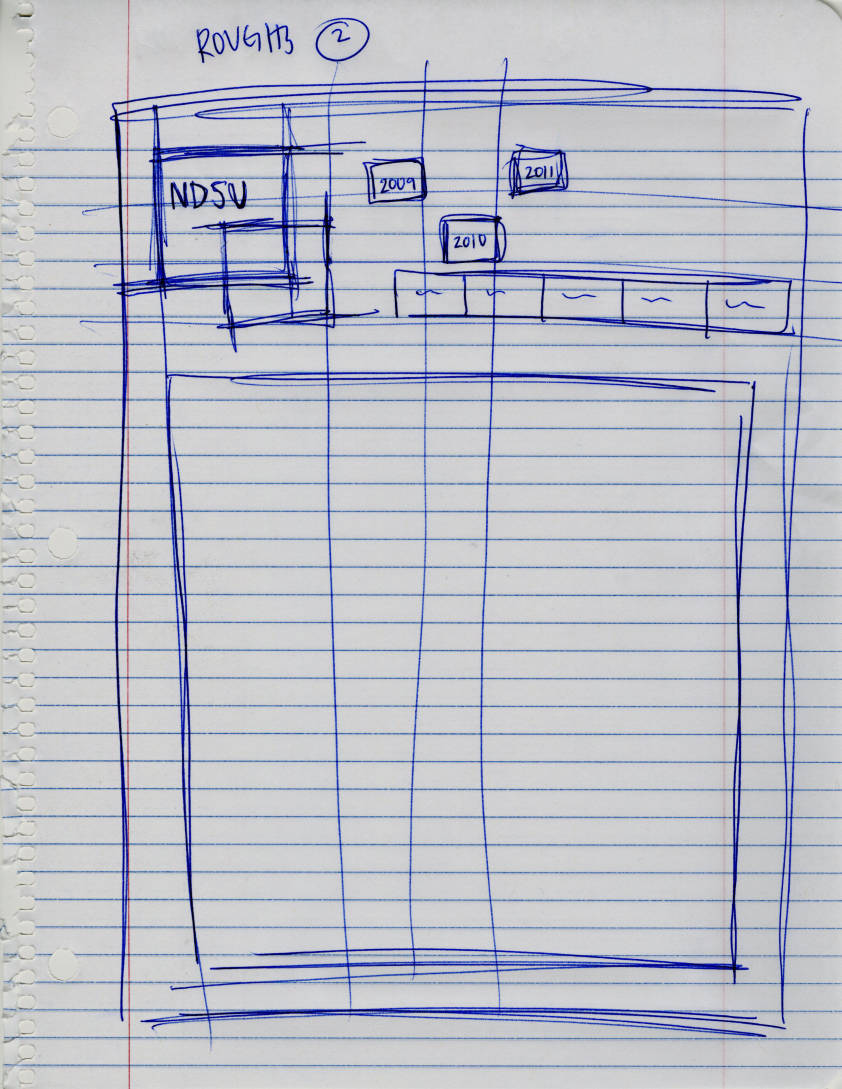 ROUGHS 2
NDSU
2009
2011
2010